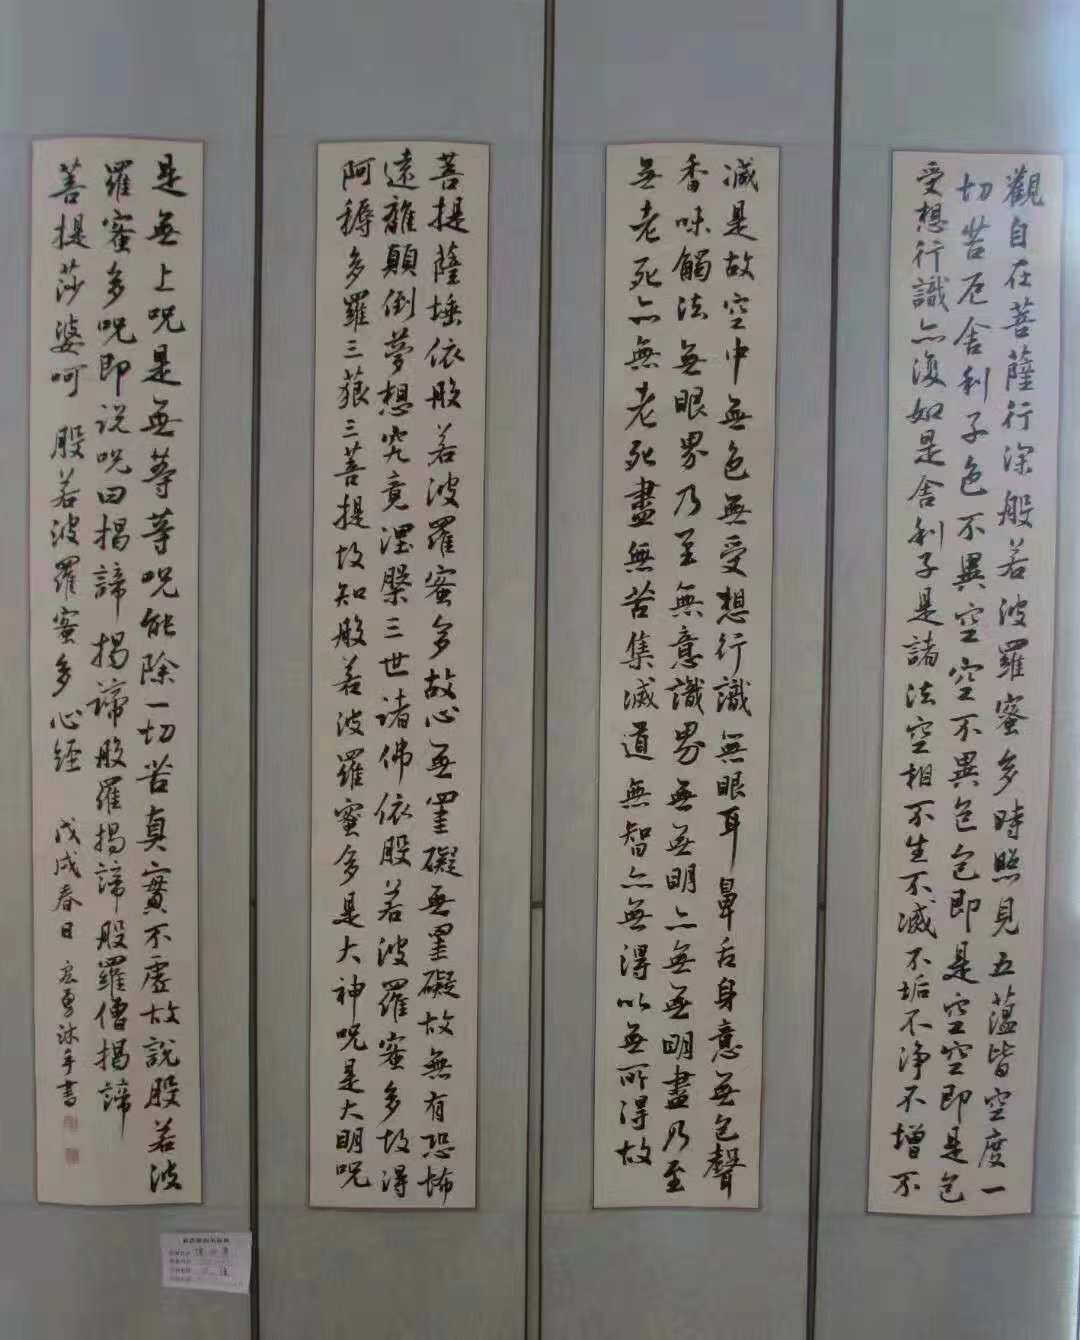 觀自在菩薩行深般若波羅蜜多時照見五蕰皆空度一
切苦厄舍利子色不異空空不異色色即是空空即是色
受想行識亦復如是舍利子是諸法空相不生不滅不垢不净不增不
減是故空中無色無受想行識無眼耳鼻舌身意無色聲
香味觸法無眼界乃至無意識界無無明亦無無明盡乃至
無老死亦無老死盡無苦集滅道無智亦無得以無所得故
菩提薩埵依般若波羅蜜多故心無罣礙無罣礙故無有恐怖
遠離顛倒夢想究竟涅槃三世诸佛依般若波羅蜜多故得
阿耨多羅三藐三菩提故知般若波羅蜜多是大神呪是大明呪
是無上呪是無等等呪能除一切苦真實不虛故說般若波
羅蜜多呪即说呪曰揭諦揭諦般羅揭諦般羅僧揭諦
菩提莎婆呵 般若波羅蜜多心經 戊戌春日 宏勇沐手書